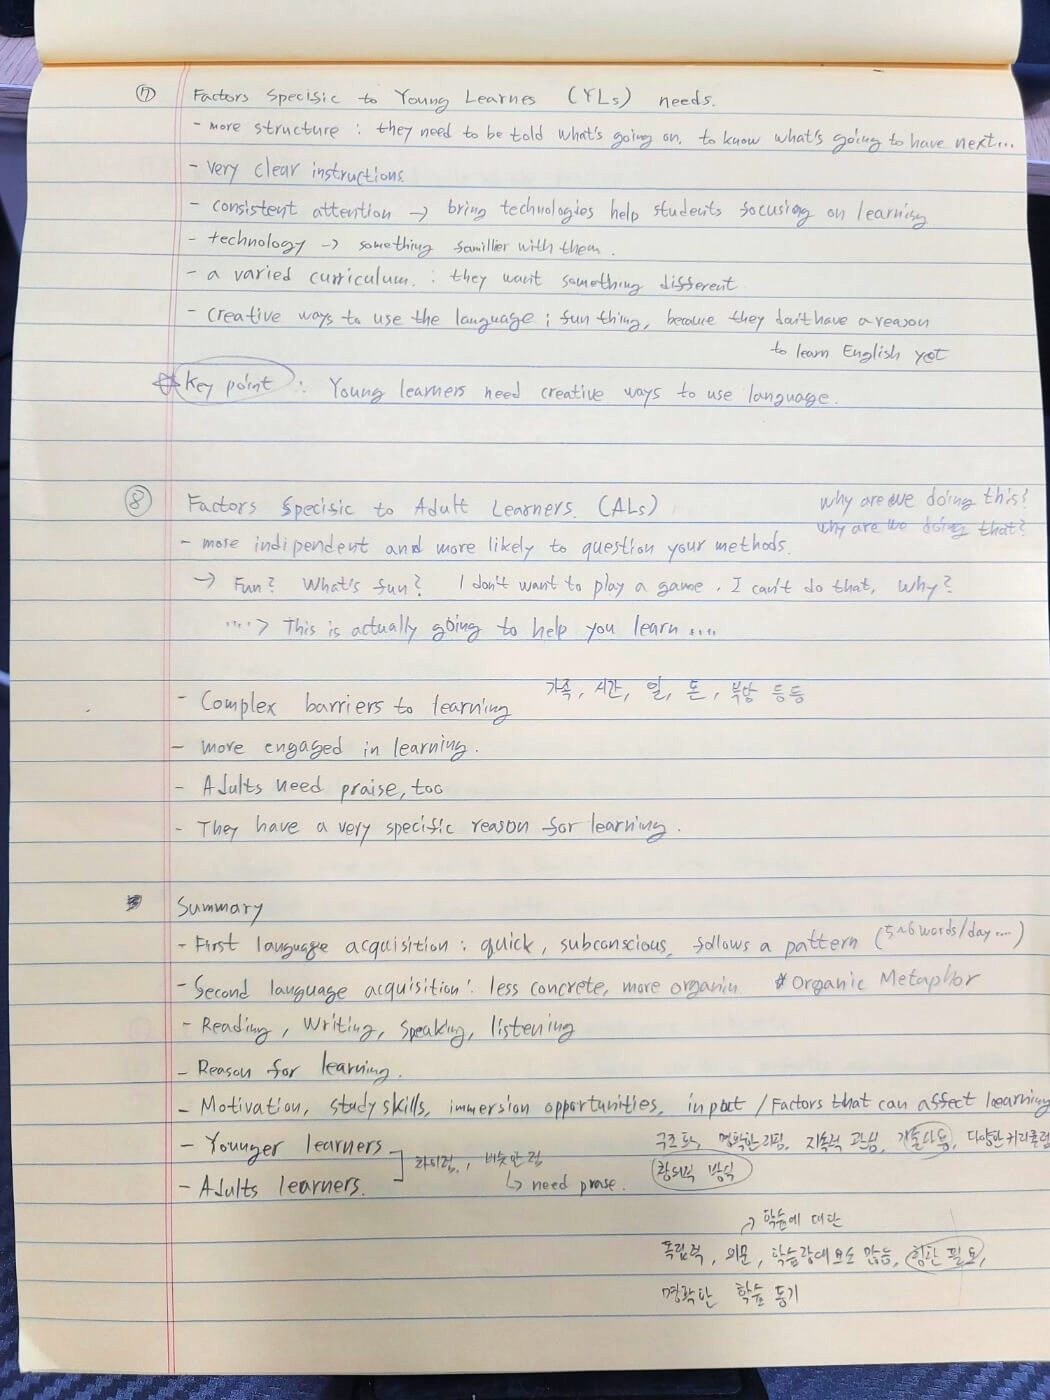 ⑦ Factors specific to Young Learnes (YLs) needs.
- more structure : they need to be told what's going on, to know what's going to have next...
- very clear instructions
- consistent attention → bring technologies help students focusing on learning
- technology → something famillier with them.
- a varied curriculum. : they want something different
- creative ways to use the language ; fun thing, because they don't have a reason
to learn English yet
☆ Key point : Young learners need creative ways to use language.
⑧ Factors specific to Adult Learners. (ALs)
why are we doing this?
why are we doing that?
- more indipendent and more likely to question your methods.
→ Fun? What's fun? I don't want to play a game. I can't do that, why?
····> This is actually going to help you learn ....
- Complex barriers to learning 가족, 시간, 일, 돈, 등등
- more engaged in learning.
- Adults need praise, too
- They have a very specific reason for learning.
Summary
- First language acquisition : quick, subconscious, follows a pattern (5~6 words/day....)
- Second language acquisition : less concrete, more organin. * Organic Metaphor
- Reading, Writing, Speaking, listening
- Reason for learning.
- Motivation, study skills, immersion opportunities, input / Factors that can affect learning
- Younger learners 차이점, 비슷한 점 명확한 지속적 관심, 기술사용, 다양한 커리큘럼
- Adults learners. ↳ need prase. 창의적 방식
→ 학습에 대한
독립적, 의문, 학습 많음, 칭찬 필요,
명확한 학습 동기